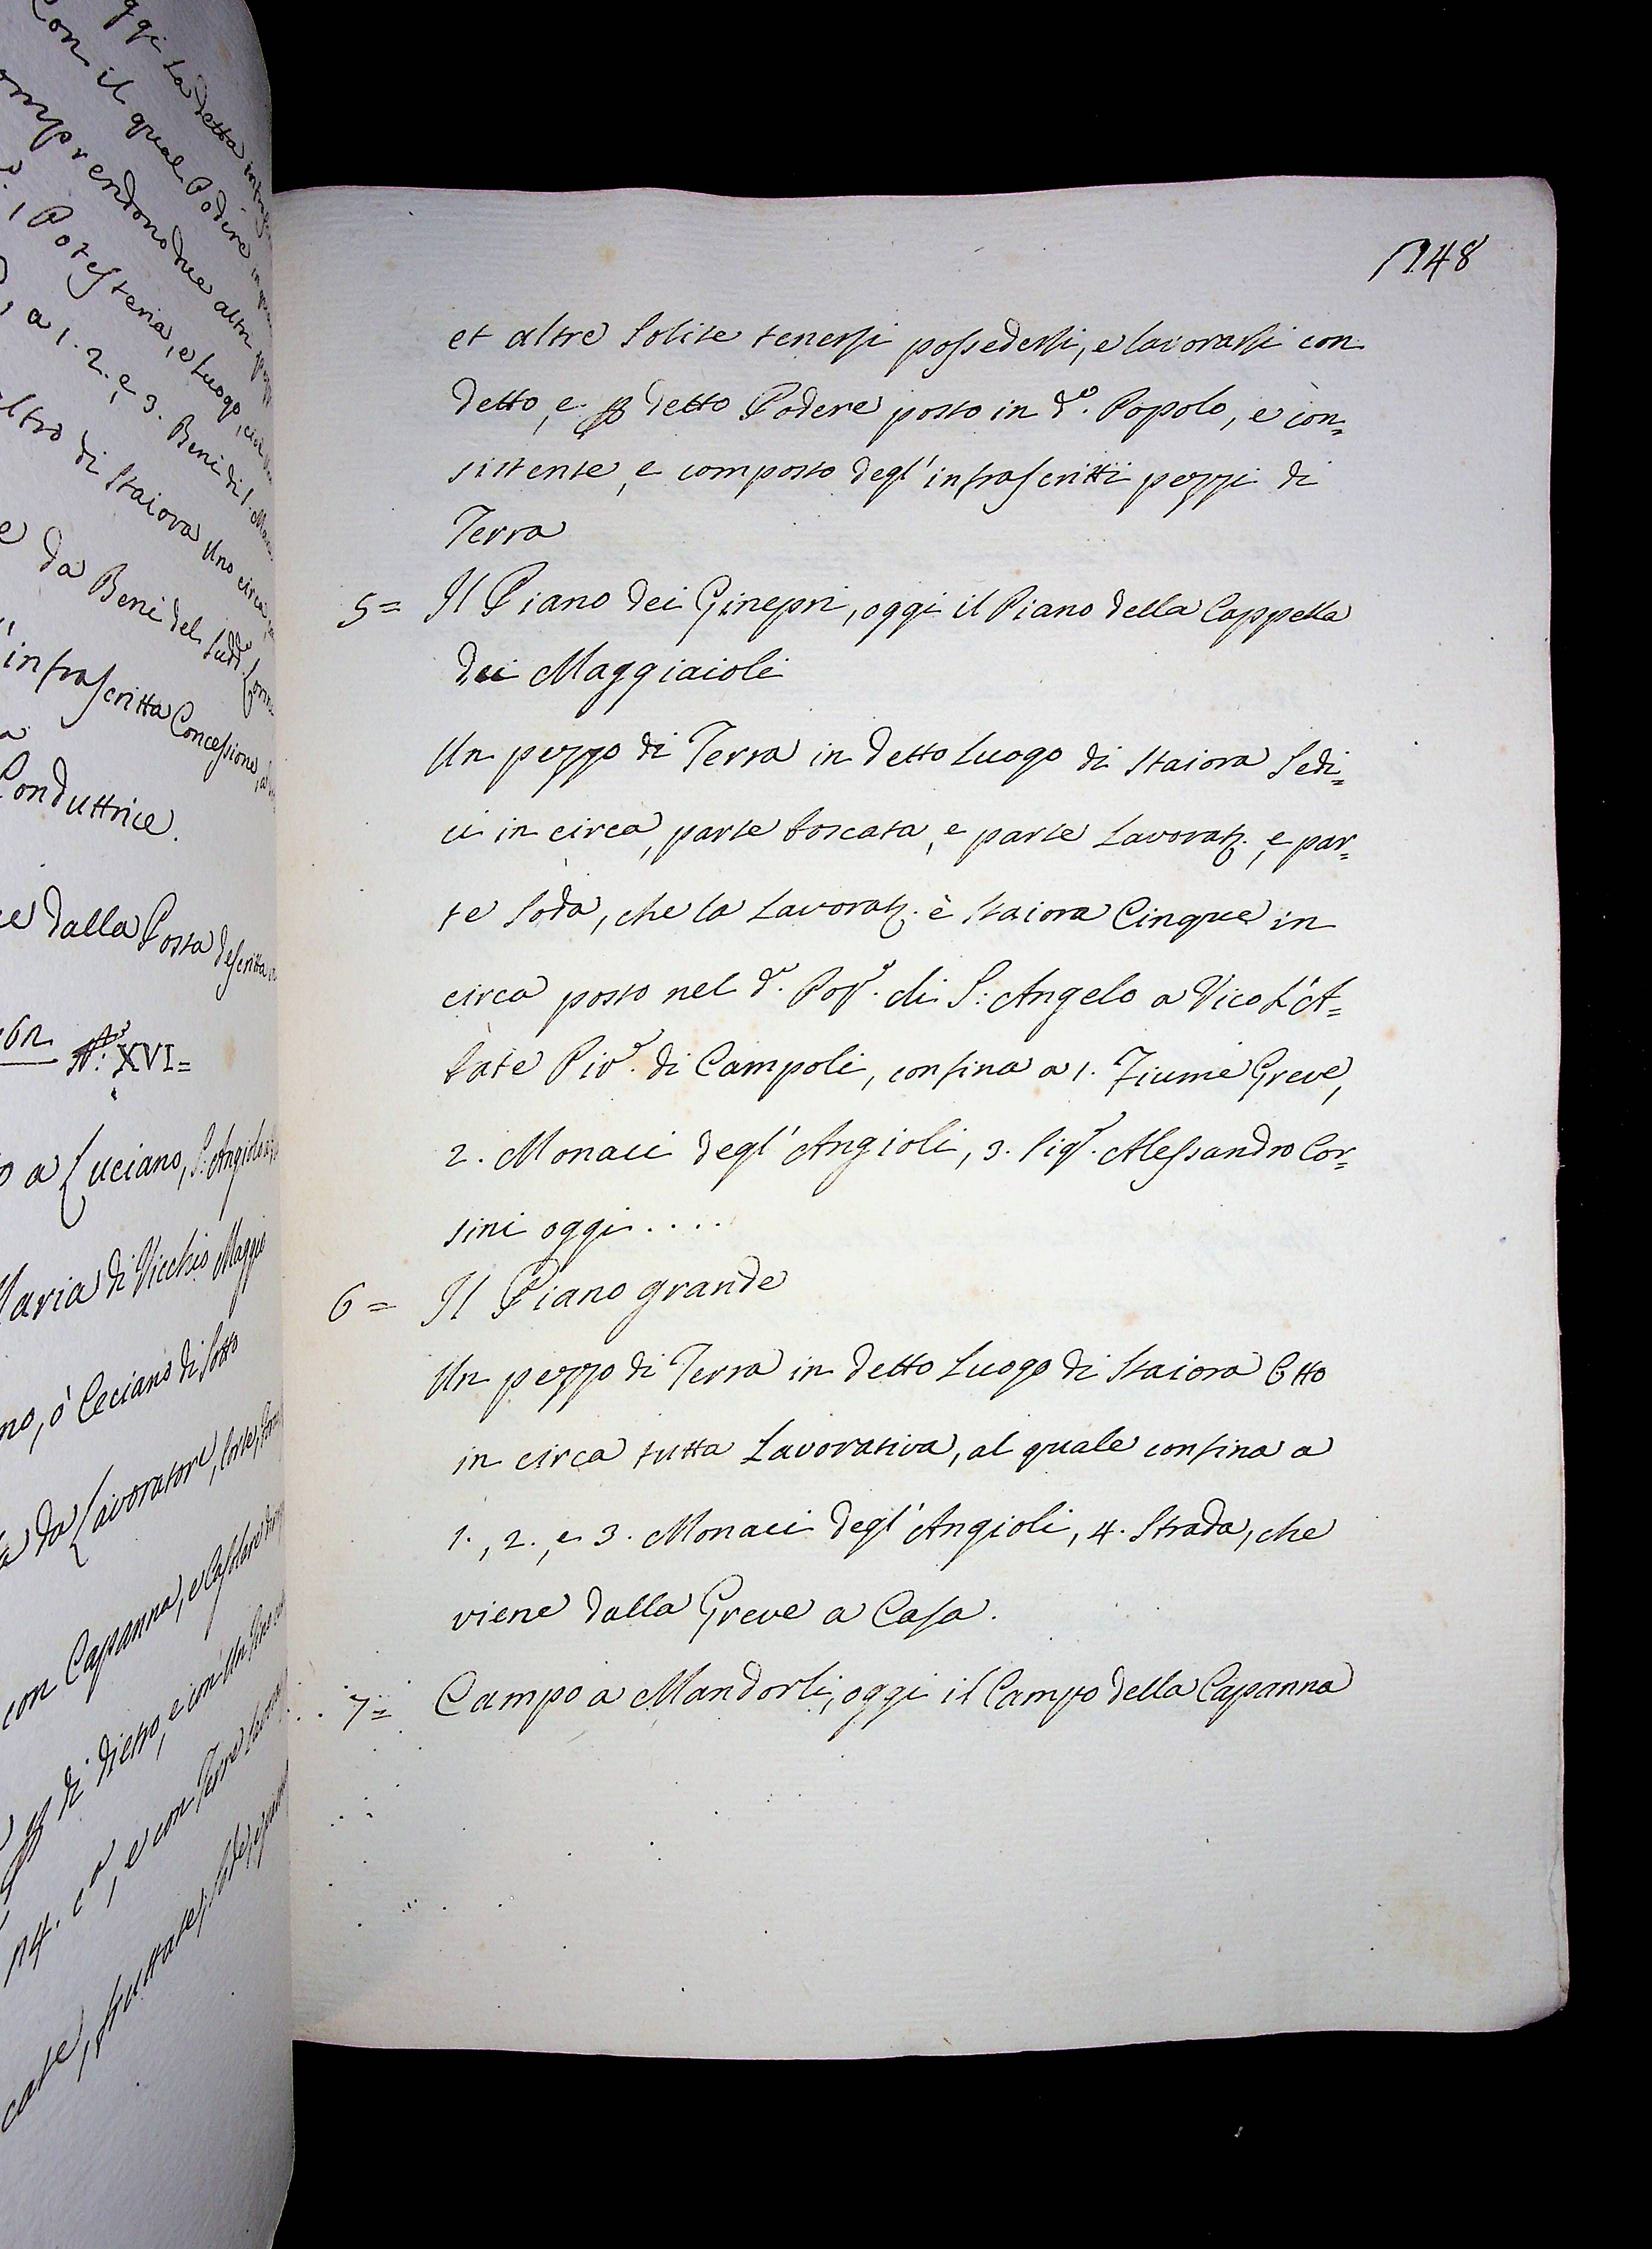 ggi la detta
con il qual Podere in
omprendono due altri
Potesteria, e Luogo,
a 1. 2. e 3. Beni di
altro di Staiora Uno circa
e da Beni del Sudd.º
infrascritta Concessione,
Conduttrice.
ce dalla Posta descritta
N.º XVI=
o a Luciano, S. Angiolo
Maria di Vicchio Maggio
no, ò Ceciano di Sotto
a da Lavoratore, Corte,
con Capanna, e
di dietro, e con Un
e con Terre
cate, fruttate, Sode, e
1148
et altre Solite tenersi possedersi, e lavorarsi con
detto, e p detto Podere posto in d.º Popolo, e con=
sistente, e composto degl' infrascritti pezzi di
Terra
5= Il Piano dei Ginepri, oggi il Piano della Cappella
dei Maggiaioli
Un pezzo di Terra in detto Luogo di Staiora Sedi=
ci in circa, parte boscata, e parte Lavorat.ª, e par=
te Soda, che la Lavorat.ª è Staiora Cinque in
circa posto nel d.º Pop.º di S: Angelo a Vico L'A=
bate Piv.º di Campoli, confina a 1. Fiume Greve,
2. Monaci degl' Angioli, 3. Sig.r Alessandro Cor=
sini oggi....
6= Il Piano grande
Un pezzo di Terra in detto Luogo di Staiora Otto
in circa tutta Lavorativa, al quale confina a
1., 2., e 3. Monaci degl' Angioli, 4. Strada, che
viene dalla Greve a Casa.
7= Campo a Mandorli, oggi il Campo della Capanna